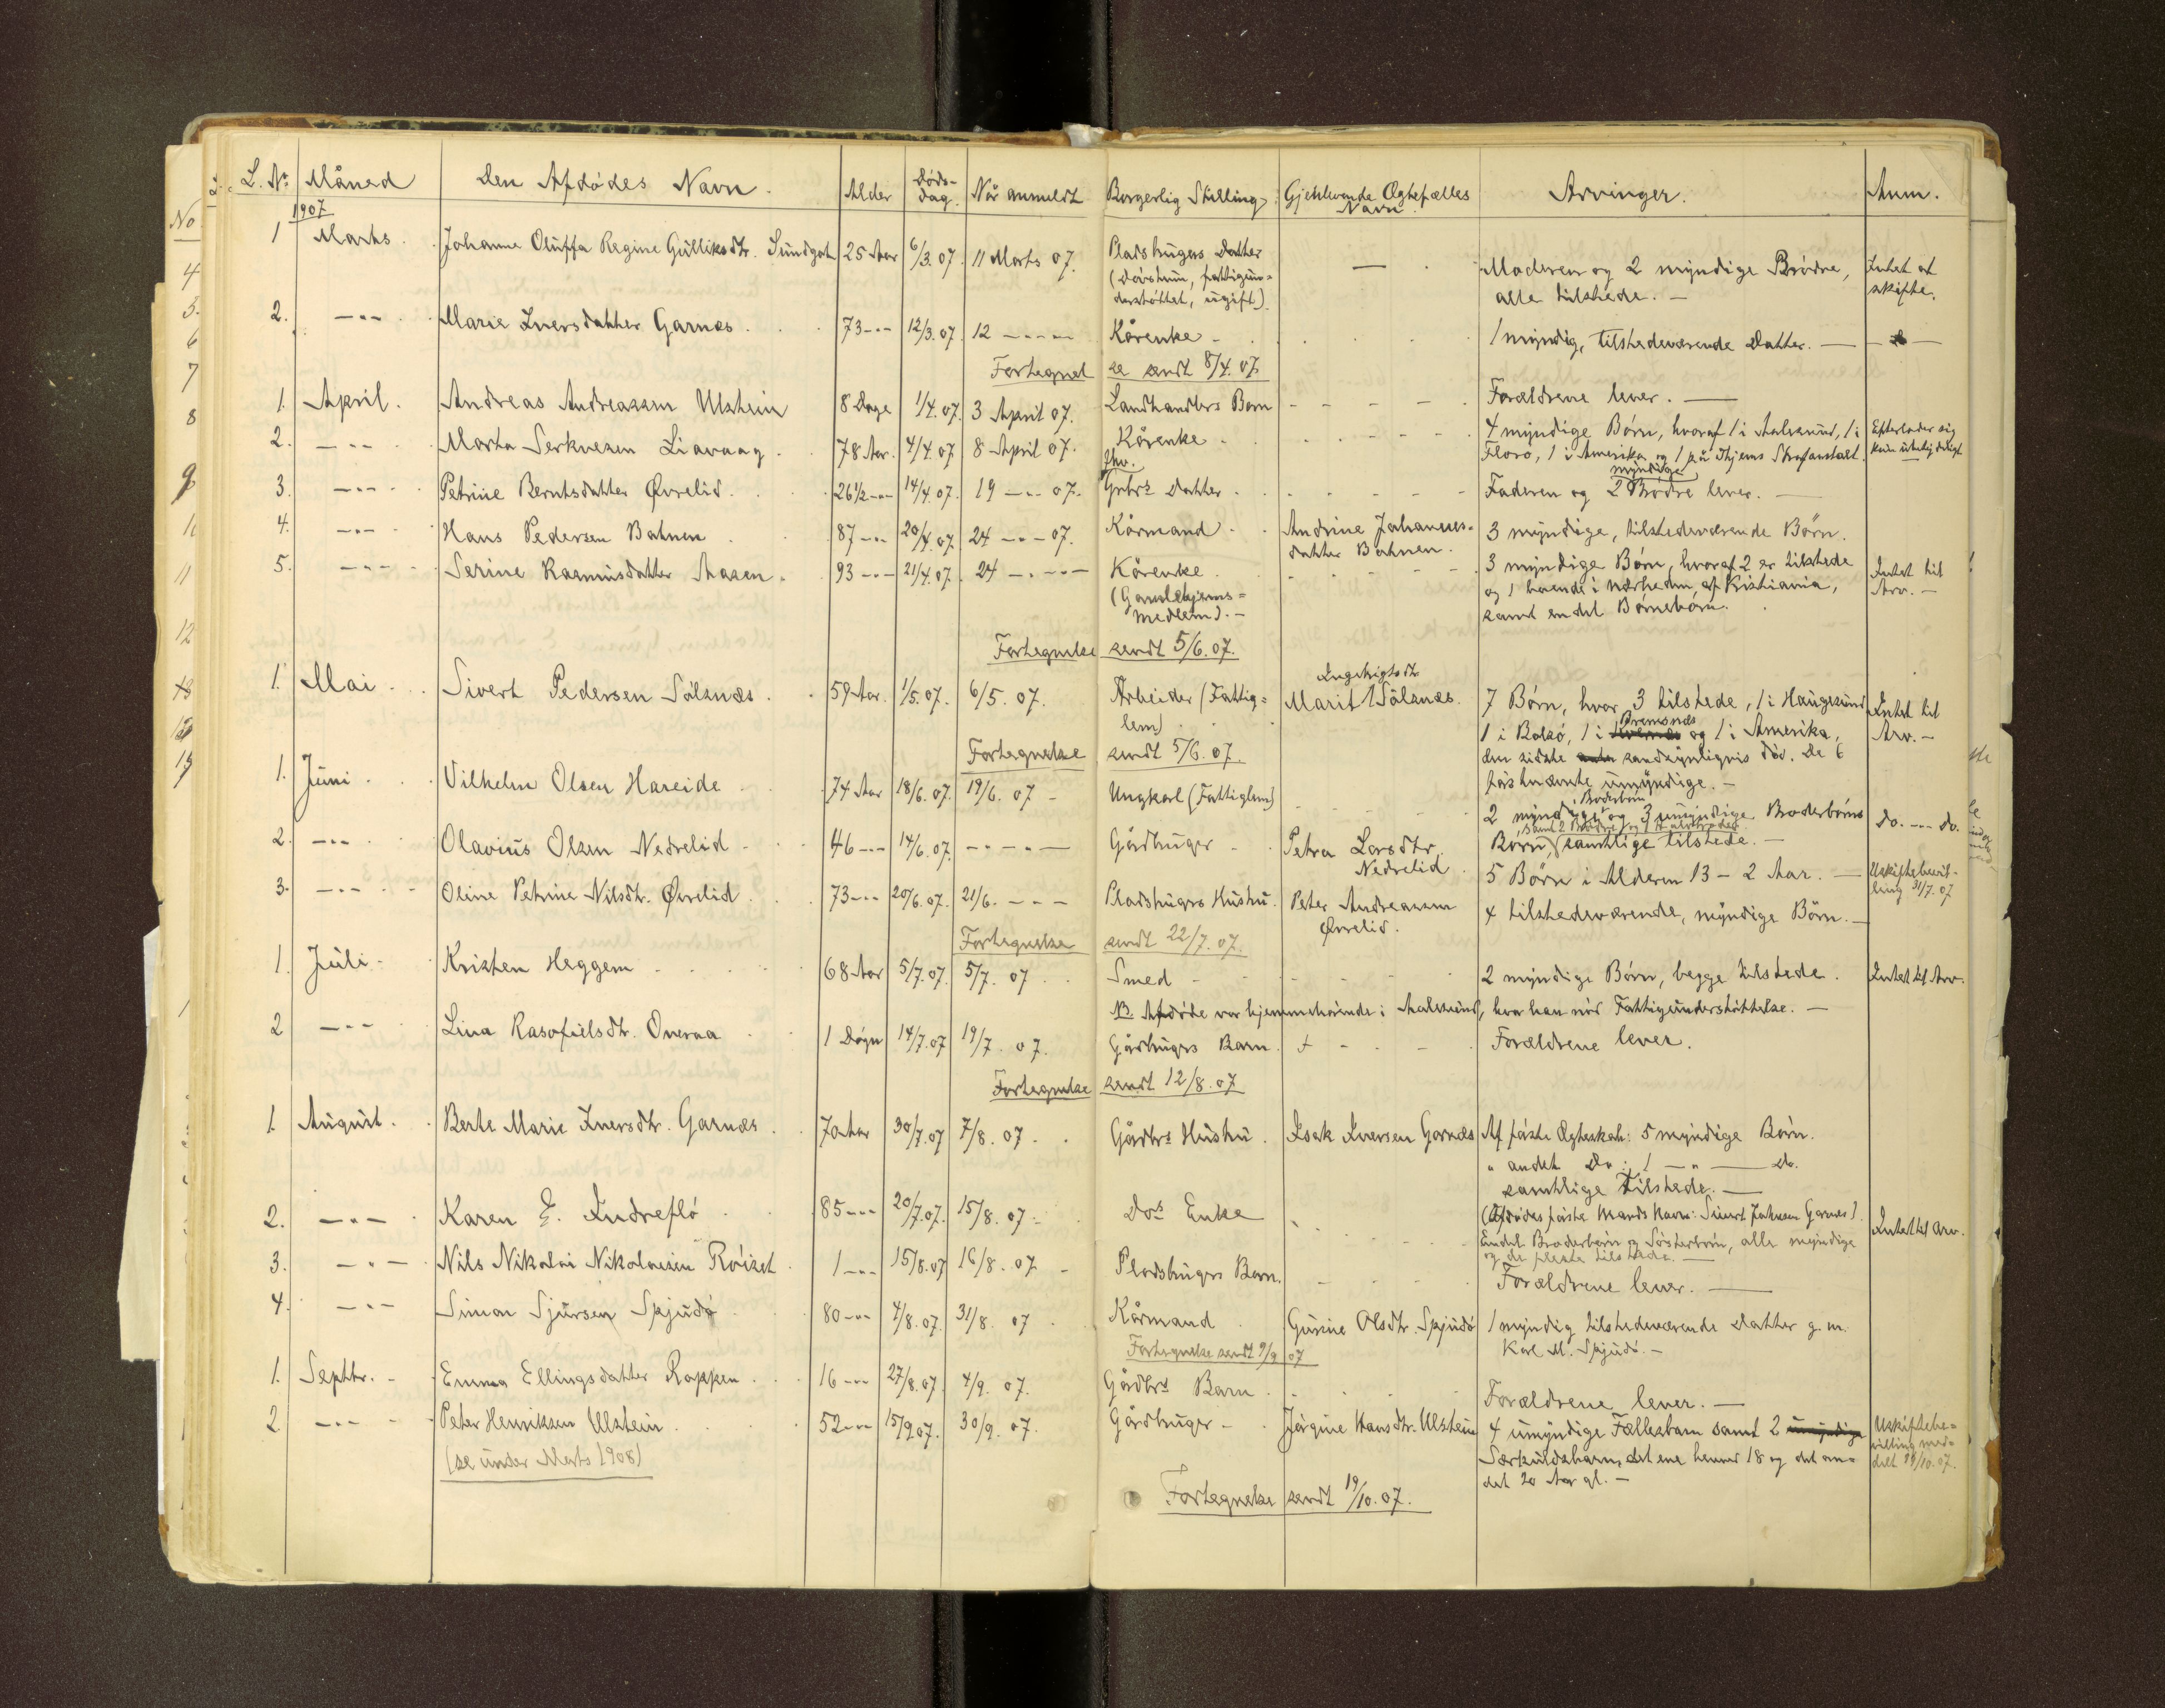 L. Nr. Måned Den Afdödes Navn. Alder Döds-dag. Når anmeldt Borgerlig Stilling. Gjenlevende Ægtefælles Navn. Arvinger. Anm.
1907
1 Marts. Johanne Oluffa Regine Gulliksdtr. Sundgot 25 Aar 6/3.07. 11 Marts 07. Pladsbrugers Datter — Moderen og 2 myndige Brödre, Intet at
(Dövstum, fattigun= alle tilstede. — skifte.
derstöttet, ugift).
2. —"— Marie Iversdatter Garnes 73—"— 12/3.07. 12 —"—"— Kårenke - 1 myndig, tilstedeværende Datter. —
Fortegnelse sendt 8/4.07.
1. April. Andreas Andreassen Ulstein 8 Dage 1/4.07. 3 April 07. Landhandlers Barn Forældrene lever. —
2. —"— Marta Serknesen Liavaag 78 Aar. 4/4.07. 8 April 07. Kårenke - 4 myndige Börn, hvoraf 1 i Aalesund, 1 i Efterlader sig
Florö, 1 i Amerika og 1 på Thjems Strafanstalt. kun ubetydeligt
3. —"— Petrine Berntsdatter Øvrelid. 26½—"— 14/4.07. 19 —"— 07. Gbrs Datter Faderen og 2 myndige Brödre lever. —
4. —"— Hans Pedersen Botnen 87—"— 20/4.07. 24 —"— 07. Kårmand Andrine Johannes- 3 myndige, tilstedeværende Börn.
datter Botnen.
5. —"— Serine Rasmusdatter Aasen. 93—"— 21/4.07. 24 —"— Kårenke 3 myndige Börn, hvoraf 2 er tilstede Intet til
(Gamlehjems= og 1 boende i nærheden af Kristiania, Arv. —
medlem). — samt endel Börnebörn.
Fortegnelse sendt 5/6.07.
1. Mai Sivert Pedersen Sölsnæs. 59 Aar. 1/5.07. 6/5.07. Arbeider (Fattig= Marit Sölsnæs. 7 Börn, hvor 3 tilstede, 1 i Haugesund Intet til
lem) 1 i Bolsö, 1 i Bremsnæs og 1 i Amerika, Arv. —
Fortegnelse sendt 5/6.07. den sidste sandsynligvis död. De 6
förstnævnte umyndige. —
1. Juni Vilhelm Olsen Hareide 74 Aar 18/6.07. 19/6.07 - Ungkarl (Fattiglem) 2 myndige Broderbörn og 3 umyndige Broderbörns Do. —"— Do.
Börn, samtlige tilstede. —
2. —"— Olavius Olsen Nedrelid 46—"— 14/6.07. —"—"— Gårdbruger Petra Larsdtr. Nedrelid 5 Börn i Alderen 13 - 2 Aar. — Uskiftebevil-
ling 31/7.07
3. —"— Oline Petrine Nilsdtr. Øvrelid 73—"— 20/6.07. 21/6. —"— Pladsbrugers Hustru. Peter Andreassen Øvrelid. 4 tilstedeværende, myndige Börn. —
Fortegnelse sendt 22/7.07.
1. Juli Kristen Heggem 68 Aar 5/7.07 5/7.07 Smed 2 myndige Börn, begge tilstede. Intet til Arv.
NB. Afdöde var hjemmehörende i Aalesund, hvor han nöd Fattigunderstöttelse. —
2 —"— Lina Rasofielsdtr. Overaa 1 Dögn 14/7.07 19/7.07. Gårdbrugers Barn. Forældrene lever.
Fortegnelse sendt 12/8.07
1. August. Berte Marie Iversdtr. Garnes 70 Aar 30/7.07 7/8.07. Gårdbrs Hustru Isak Iversen Garnes Af förste Ægteskab: 5 myndige Börn.
" andet Do: 1 —"— Do.
samtlige tilstede. —
(Afdödes förste Mands Navn: Sivert Johnsen Garnes).
2. —"— Karen E. Indreflö 85—"— 20/7.07. 15/8.07. Dos Enke Endel Broderbörn og Sösterbörn, alle myndige Intet til Arv.
og de fleste tilstede. —
3. —"— Nils Nikolai Nikolaisen Röiset 1—"— 15/8.07 16/8.07 Pladsbrugers Barn. Forældrene lever. —
4. —"— Simon Sjursen Spjudö 80—"— 4/8.07. 31/8.07 Kårmand Gurine Olsdtr. Spjudö 1 myndig tilstedeværende Datter g. m.
Fortegnelse sendt 9/9 07 Karl M. Spjudö. —
1. Septbr. Emma Ellingsdatter Roppen 16—"— 27/8.07. 4/9.07. Gårdbrs Barn Forældrene lever. —
2. —"— Peter Henriksen Ulstein 52—"— 15/9.07. 30/9.07. Gårdbruger Jörgine Hansdtr. Ulstein 4 umyndige Fællesbarn samt 2 Uskiftebe=
(se under Marts 1908) Særkuldsbarn, det ene henved 18 og det an= villing med=
det 20 Aar gl. — delt 29/10.07.
Fortegnelse sendt 19/10.07.